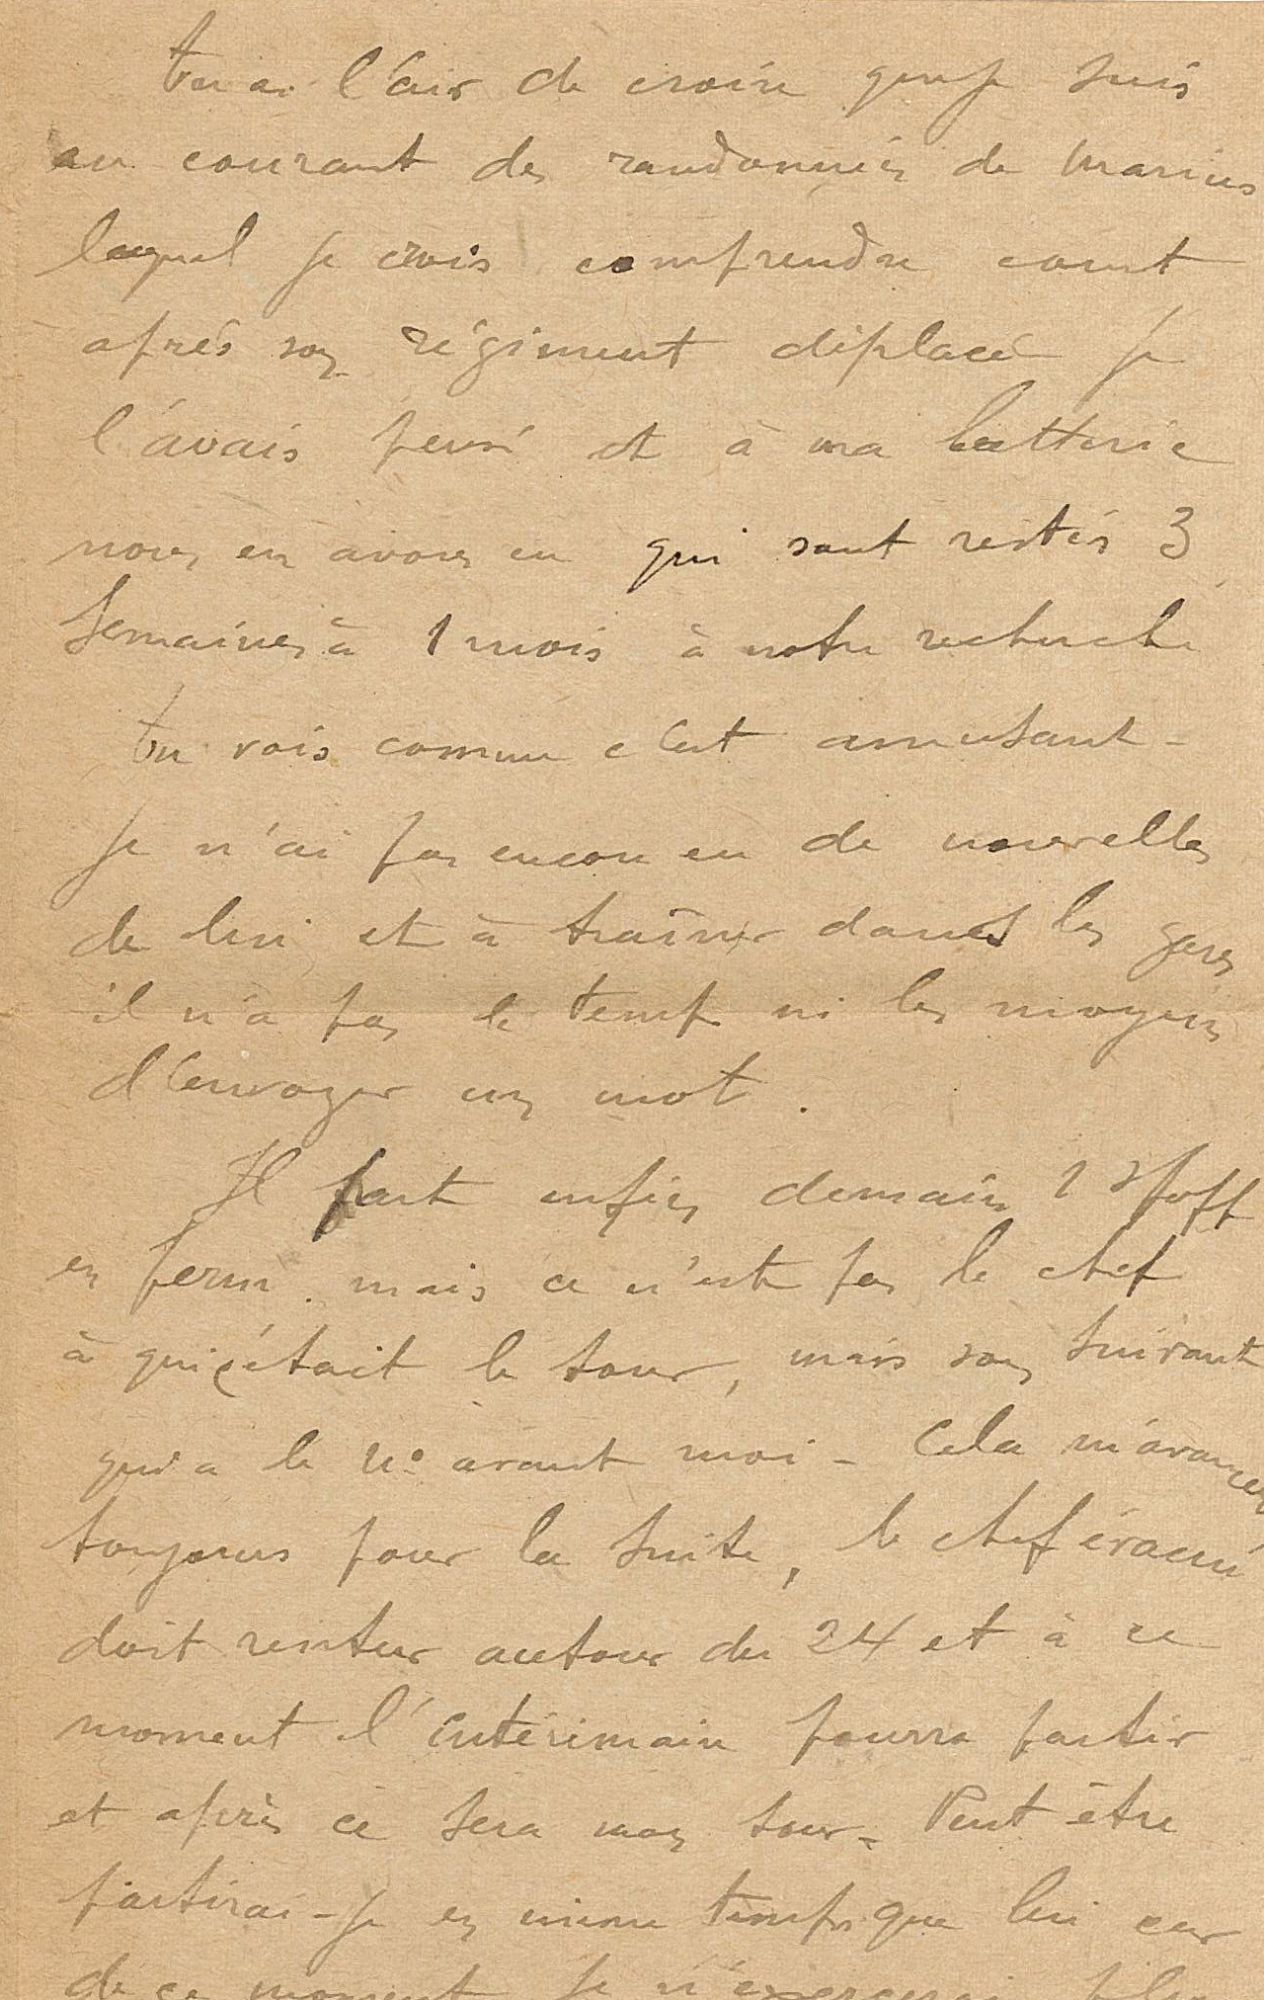 tu as l'air de croire que je suis
au courant des randonnées de Marius
lequel je crois comprendre court
après son régiment déplacé je
l'avais pensé et à ma batterie
nous en avons eu qui sont restés 3
semaines à 1 mois à notre recherche
tu vois comme c'est amusant -
Je n'ai pas encore eu de nouvelles
de lui et à traîner dans les gares
il n'a pas le temps ni les moyens
d'envoyer un mot.
Il part enfin demain 1 s/off
en perm. mais ce n'est pas le chef
à qui c'était le tour, mais son suivant
qui a le n° avant moi - Cela m'avance
toujours pour la suite, le chef évacué
doit rentrer autour du 24 et à ce
moment l'intérimaire pourra partir
et après ce sera mon tour - Peut être
partirai-je en même temps que lui car
de ce moment je n'exercerai plus